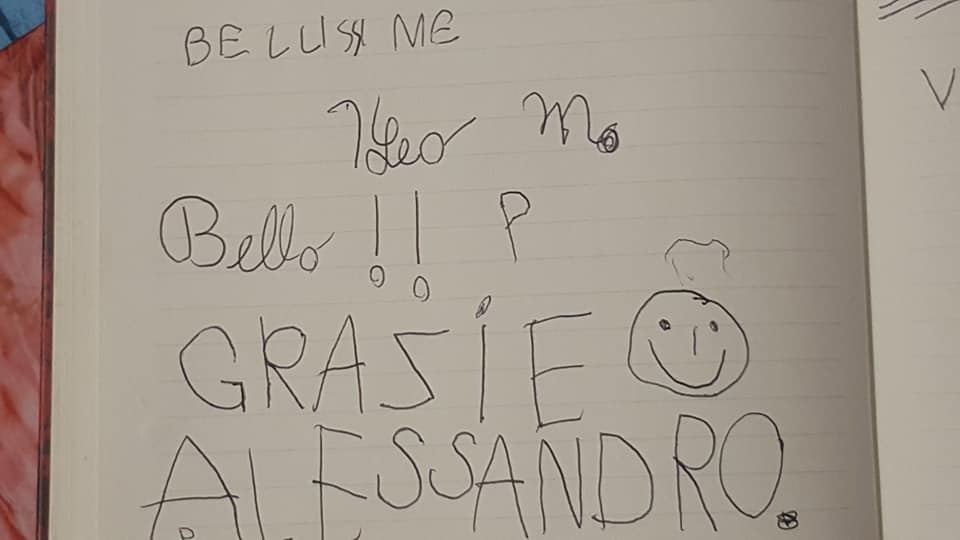 BELUSSI ME
Leo M.
Bello !! P
GRASIE
ALESSANDRO.
V